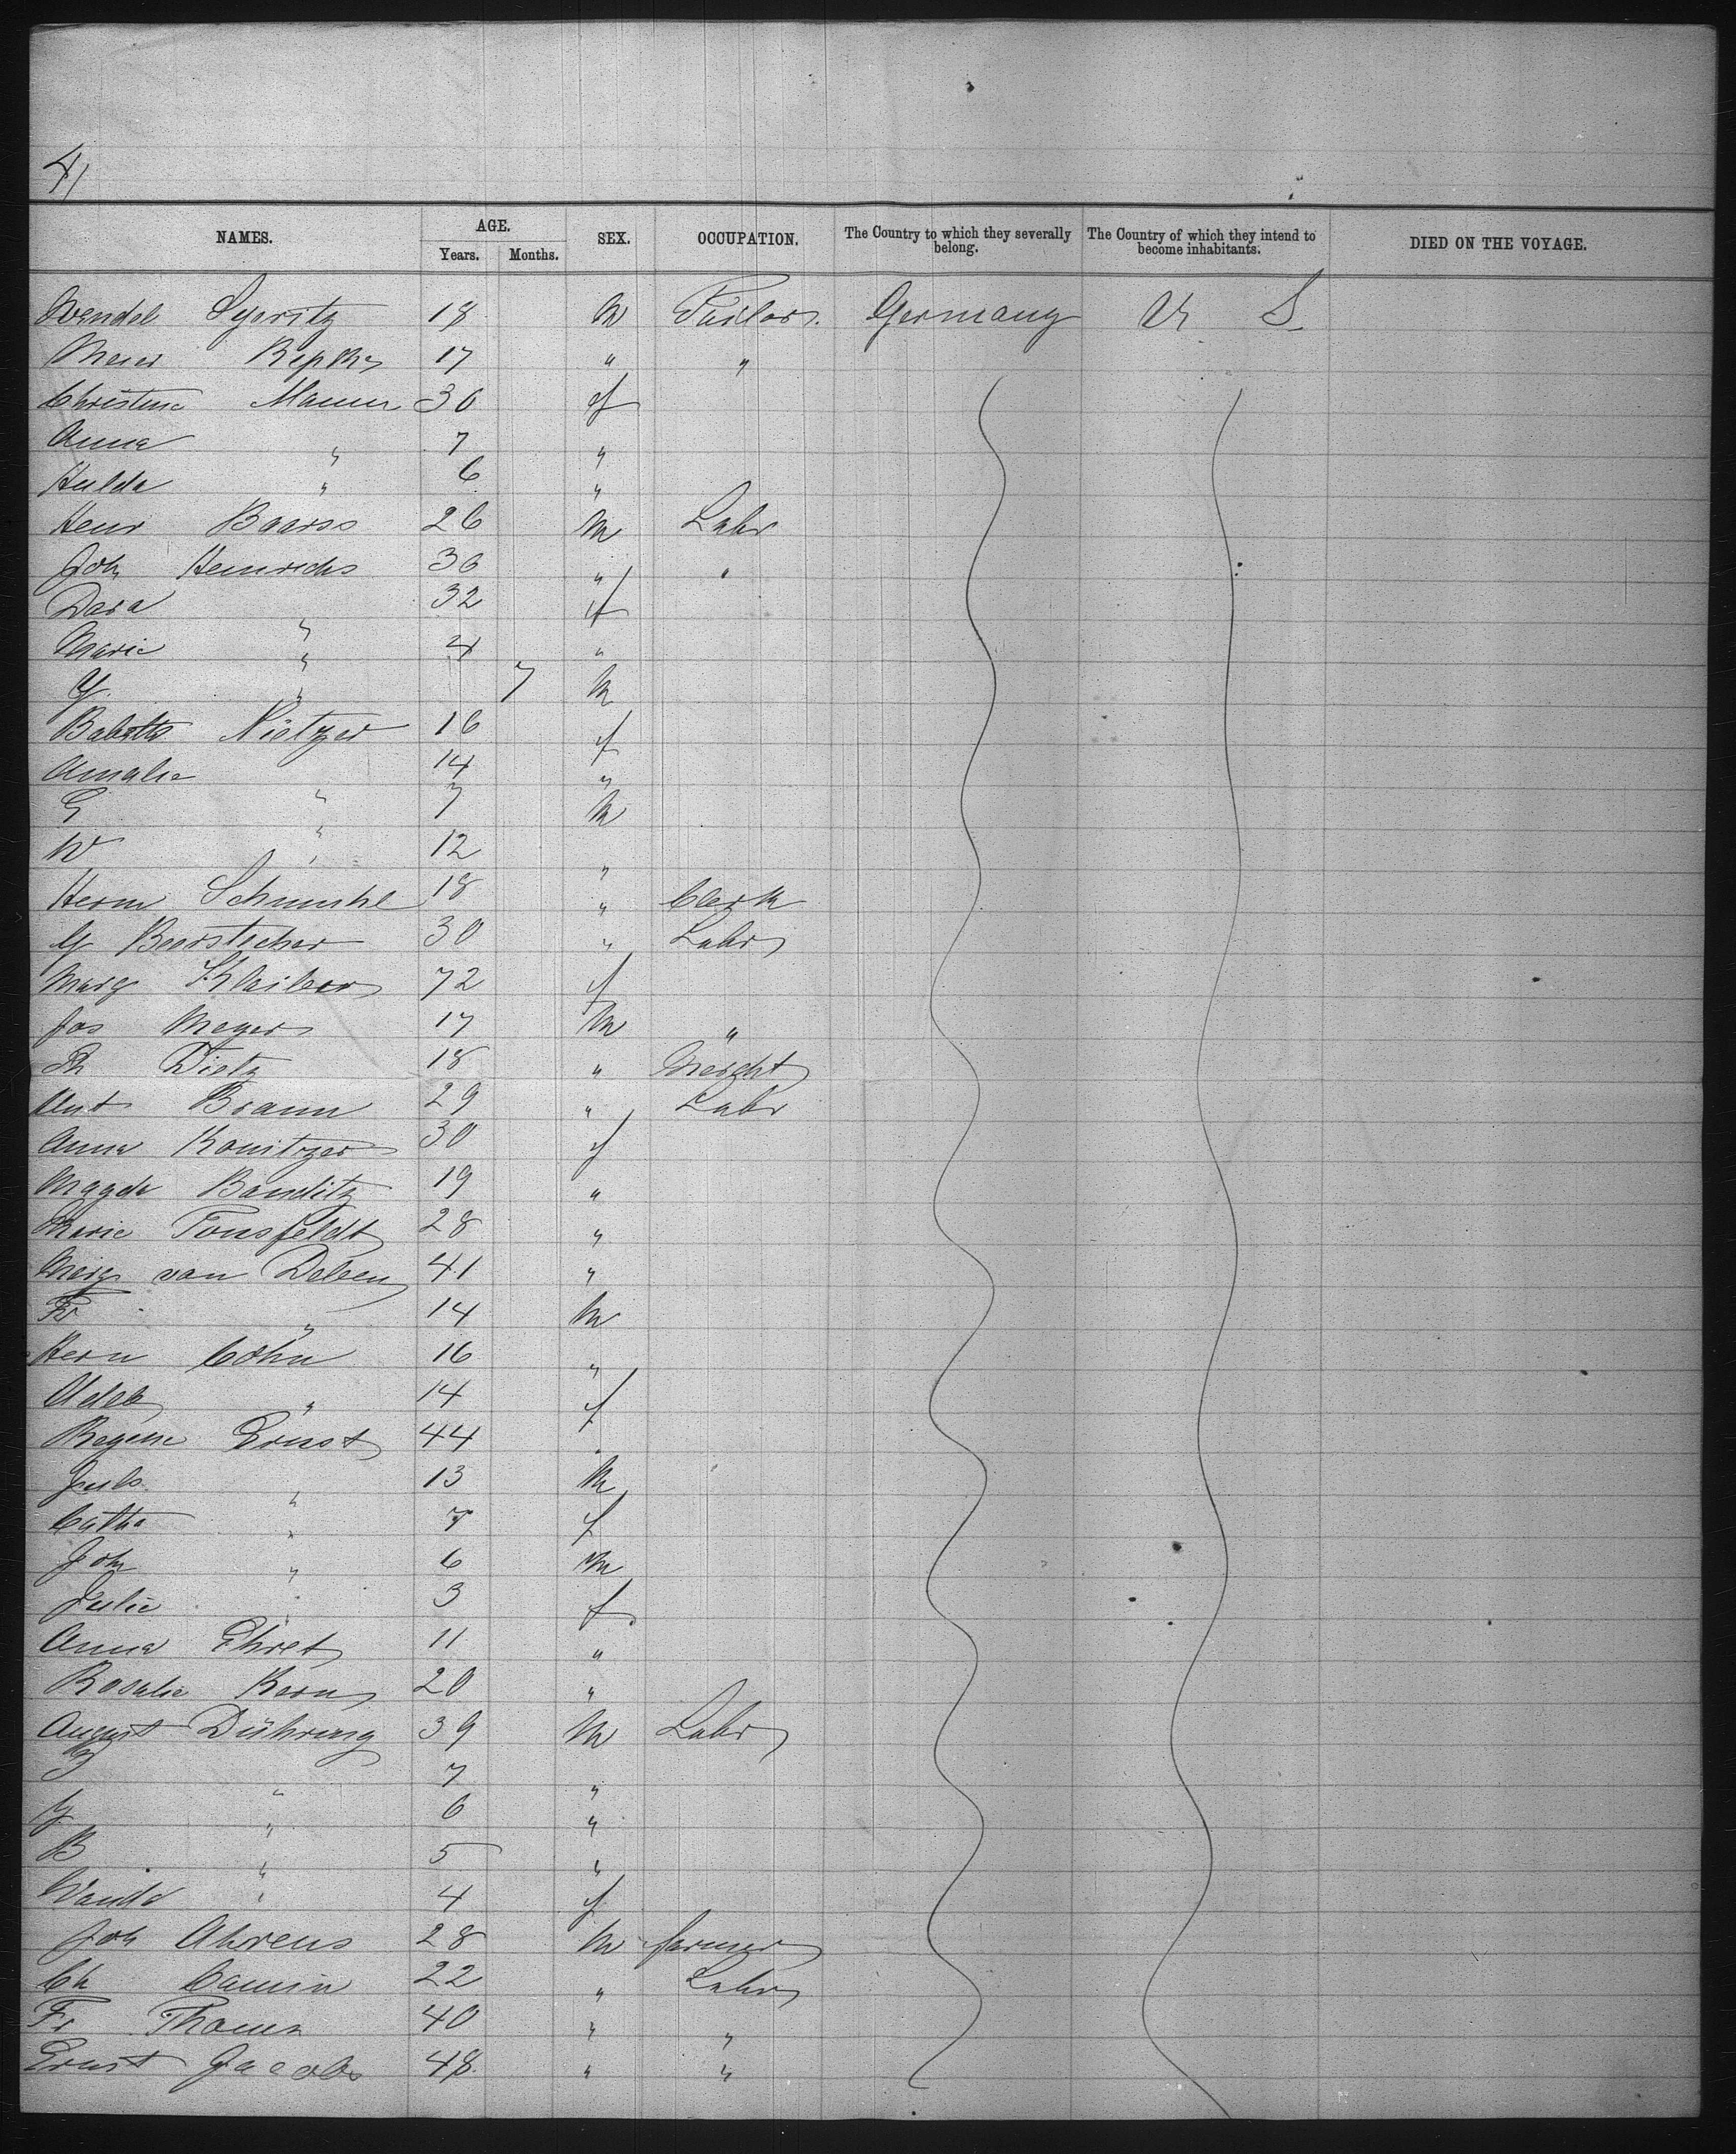 4,
NAMES. AGE. Years. Months. SEX. OCCUPATION. The Country to which they severally belong. The Country of which they intend to become inhabitants. DIED ON THE VOYAGE.
Wendel 18 M Tailor. Germany U S
Meier 17 " "
Christine Maurer 30 f
Anna " 7 "
Hulda " 6 "
Henr Baarss 26 M Labr
Joh Heinrichs 36 " "
Dora " 32 f
Marie " 4 "
G. " 7 M
Babette Nietzer 16 f
Amalie " 14 "
G " 7 M
W " 12 "
Herm 18 " Clerk
G 30 " Labr
Marg Klaiber 72 f
Jos Meyer 17 M "
Ph Dietz 18 " Mercht
Ant Braun 29 " Labr
Anna Konitzer 30 f
Magda Banditz 19 "
Marie Tonsfeldt 28 "
Marg van Deleen 41 "
Fr " 14 M
Hern Cohn 16 "
Adele " 14 f
Regine Ernst 44 "
Juls " 13 M
Catha " 7 f
Joh " 6 M
Julie " 3 f
Anna Ehret 11 "
Rosalie Kern 20 "
August Dühring 39 M Labr
" 7 "
" 6 "
B " 5 "
Wanda " 4 f
Joh Ahrens 28 M farmer
Ch Camin 22 " Labr
Fr Thoms 40 " "
Ernst Jacobs 48 " "